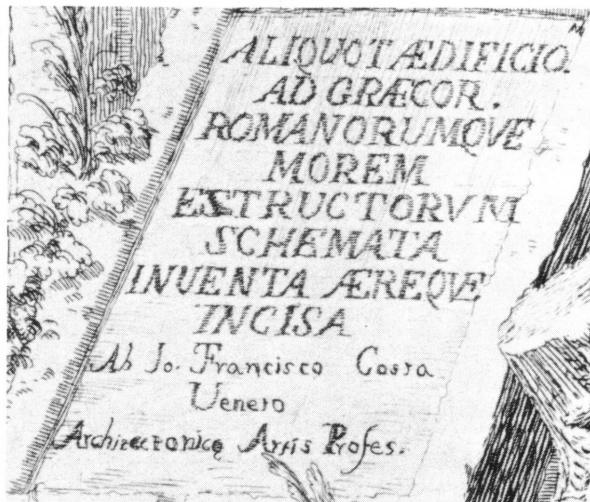 ALIQUOT ÆDIFICIO.
AD GRÆCOR.
ROMANORUMQVE
MOREM
EXTRUCTORVM
SCHEMATA
INVENTA ÆREQVE
INCISA
Ab Jo. Francisco Costa
Veneto
Architectonicę Artis Profes.